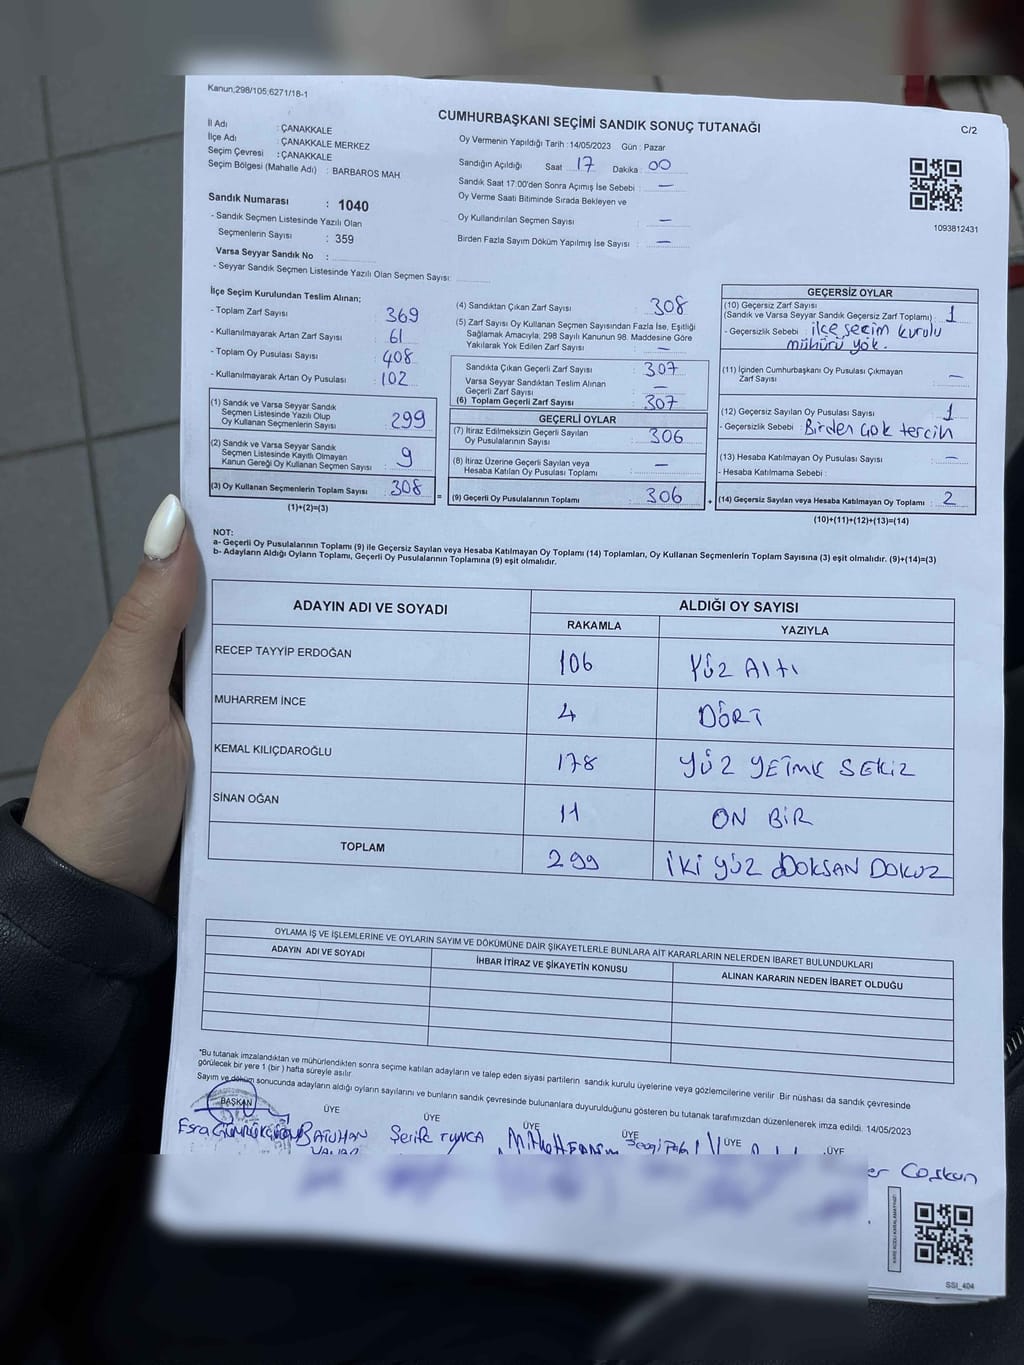 Kanun;298/105;6271/18-1
CUMHURBAŞKANI SEÇİMİ SANDIK SONUÇ TUTANAĞI
C/2
İl Adı : ÇANAKKALE
İlçe Adı : ÇANAKKALE MERKEZ
Seçim Çevresi : ÇANAKKALE
Seçim Bölgesi (Mahalle Adı) : BARBAROS MAH
Sandık Numarası : 1040
- Sandık Seçmen Listesinde Yazılı Olan
Seçmenlerin Sayısı : 359
Varsa Seyyar Sandık No :
- Seyyar Sandık Seçmen Listesinde Yazılı Olan Seçmen Sayısı:
Oy Vermenin Yapıldığı Tarih :14/05/2023 Gün : Pazar
Sandığın Açıldığı Saat 17 Dakika : 00
Sandık Saat 17:00'den Sonra Açımış İse Sebebi : —
Oy Verme Saati Bitiminde Sırada Bekleyen ve
Oy Kullandırılan Seçmen Sayısı : —
Birden Fazla Sayım Döküm Yapılmış İse Sayısı : —
1093812431
İlçe Seçim Kurulundan Teslim Alınan;
- Toplam Zarf Sayısı : 369
- Kullanılmayarak Artan Zarf Sayısı : 61
- Toplam Oy Pusulası Sayısı : 408
- Kullanılmayarak Artan Oy Pusulası : 102
(1) Sandık ve Varsa Seyyar Sandık
Seçmen Listesinde Yazılı Olup
Oy Kullanan Seçmenlerin Sayısı : 299
(2) Sandık ve Varsa Seyyar Sandık
Seçmen Listesinde Kayıtlı Olmayan
Kanun Gereği Oy Kullanan Seçmen Sayısı : 9
(3) Oy Kullanan Seçmenlerin Toplam Sayısı : 308
(1)+(2)=(3)
=
(4) Sandıktan Çıkan Zarf Sayısı : 308
(5) Zarf Sayısı Oy Kullanan Seçmen Sayısından Fazla İse, Eşitliği
Sağlamak Amacıyla; 298 Sayılı Kanunun 98. Maddesine Göre
Yakılarak Yok Edilen Zarf Sayısı : —
Sandıkta Çıkan Geçerli Zarf Sayısı : 307
Varsa Seyyar Sandıktan Teslim Alınan
Geçerli Zarf Sayısı : —
(6) Toplam Geçerli Zarf Sayısı : 307
GEÇERLİ OYLAR
(7) İtiraz Edilmeksizin Geçerli Sayılan
Oy Pusulalarının Sayısı : 306
(8) İtiraz Üzerine Geçerli Sayılan veya
Hesaba Katılan Oy Pusulası Toplamı : —
(9) Geçerli Oy Pusulalarının Toplamı : 306
+
GEÇERSİZ OYLAR
(10) Geçersiz Zarf Sayısı
(Sandık ve Varsa Seyyar Sandık Geçersiz Zarf Toplamı) : 1
- Geçersizlik Sebebi : ilçe seçim kurulu
mühürü yok.
(11) İçinden Cumhurbaşkanı Oy Pusulası Çıkmayan
Zarf Sayısı : —
(12) Geçersiz Sayılan Oy Pusulası Sayısı : 1
- Geçersizlik Sebebi Birden çok tercih
(13) Hesaba Katılmayan Oy Pusulası Sayısı : —
- Hesaba Katılmama Sebebi :
(14) Geçersiz Sayılan veya Hesaba Katılmayan Oy Toplamı : 2
(10)+(11)+(12)+(13)=(14)
NOT:
a- Geçerli Oy Pusulalarının Toplamı (9) ile Geçersiz Sayılan veya Hesaba Katılmayan Oy Toplamı (14) Toplamları, Oy Kullanan Seçmenlerin Toplam Sayısına (3) eşit olmalıdır. (9)+(14)=(3)
b- Adayların Aldığı Oyların Toplamı, Geçerli Oy Pusulalarının Toplamına (9) eşit olmalıdır.
ADAYIN ADI VE SOYADI ALDIĞI OY SAYISI
RAKAMLA YAZIYLA
RECEP TAYYİP ERDOĞAN 106 YÜZ ALTI
MUHARREM İNCE 4 DÖRT
KEMAL KILIÇDAROĞLU 178 YÜZ YETMİŞ SEKİZ
SİNAN OĞAN 11 ON BİR
TOPLAM 299 İKİ YÜZ DOKSAN DOKUZ
OYLAMA İŞ VE İŞLEMLERİNE VE OYLARIN SAYIM VE DÖKÜMÜNE DAİR ŞİKAYETLERLE BUNLARA AİT KARARLARIN NELERDEN İBARET BULUNDUKLARI
ADAYIN ADI VE SOYADI İHBAR İTİRAZ VE ŞİKAYETİN KONUSU ALINAN KARARIN NEDEN İBARET OLDUĞU
*Bu tutanak imzalandıktan ve mühürlendikten sonra seçime katılan adayların ve talep eden siyasi partilerin sandık kurulu üyelerine veya gözlemcilerine verilir Bir nüshası da sandık çevresinde
görülecek bir yere 1 (bir ) hafta süreyle asılır
Sayım ve döküm sonucunda adayların aldığı oyların sayılarını ve bunların sandık çevresinde bulunanlara duyurulduğunu gösteren bu tutanak tarafımızdan düzenlenerek imza edildi. 14/05/2023
BAŞKAN ÜYE ÜYE ÜYE ÜYE ÜYE ÜYE
Esra BATUHAN Şerife TUNCA
er Coşkun
SSI_404